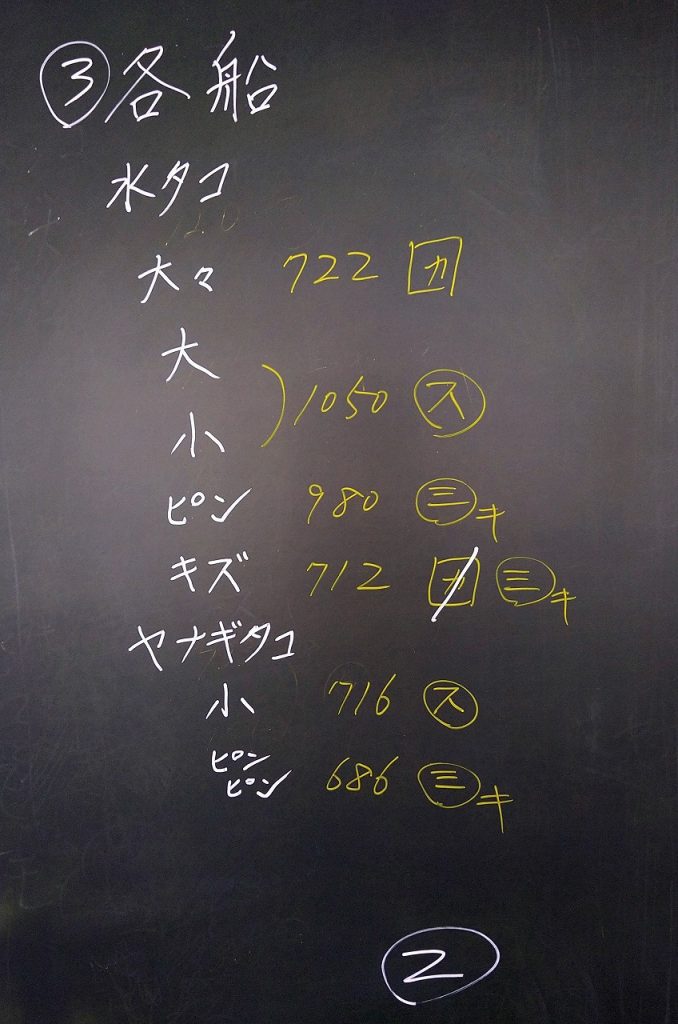 ③各船
水タコ
大々 722 カ
大
小 ) 1050 ㋜
ピン 980 ㊂キ
キズ 712 カ ㊂キ
ヤナギタコ
小 716 ㋜
ピンピン 686 ㊂キ
②